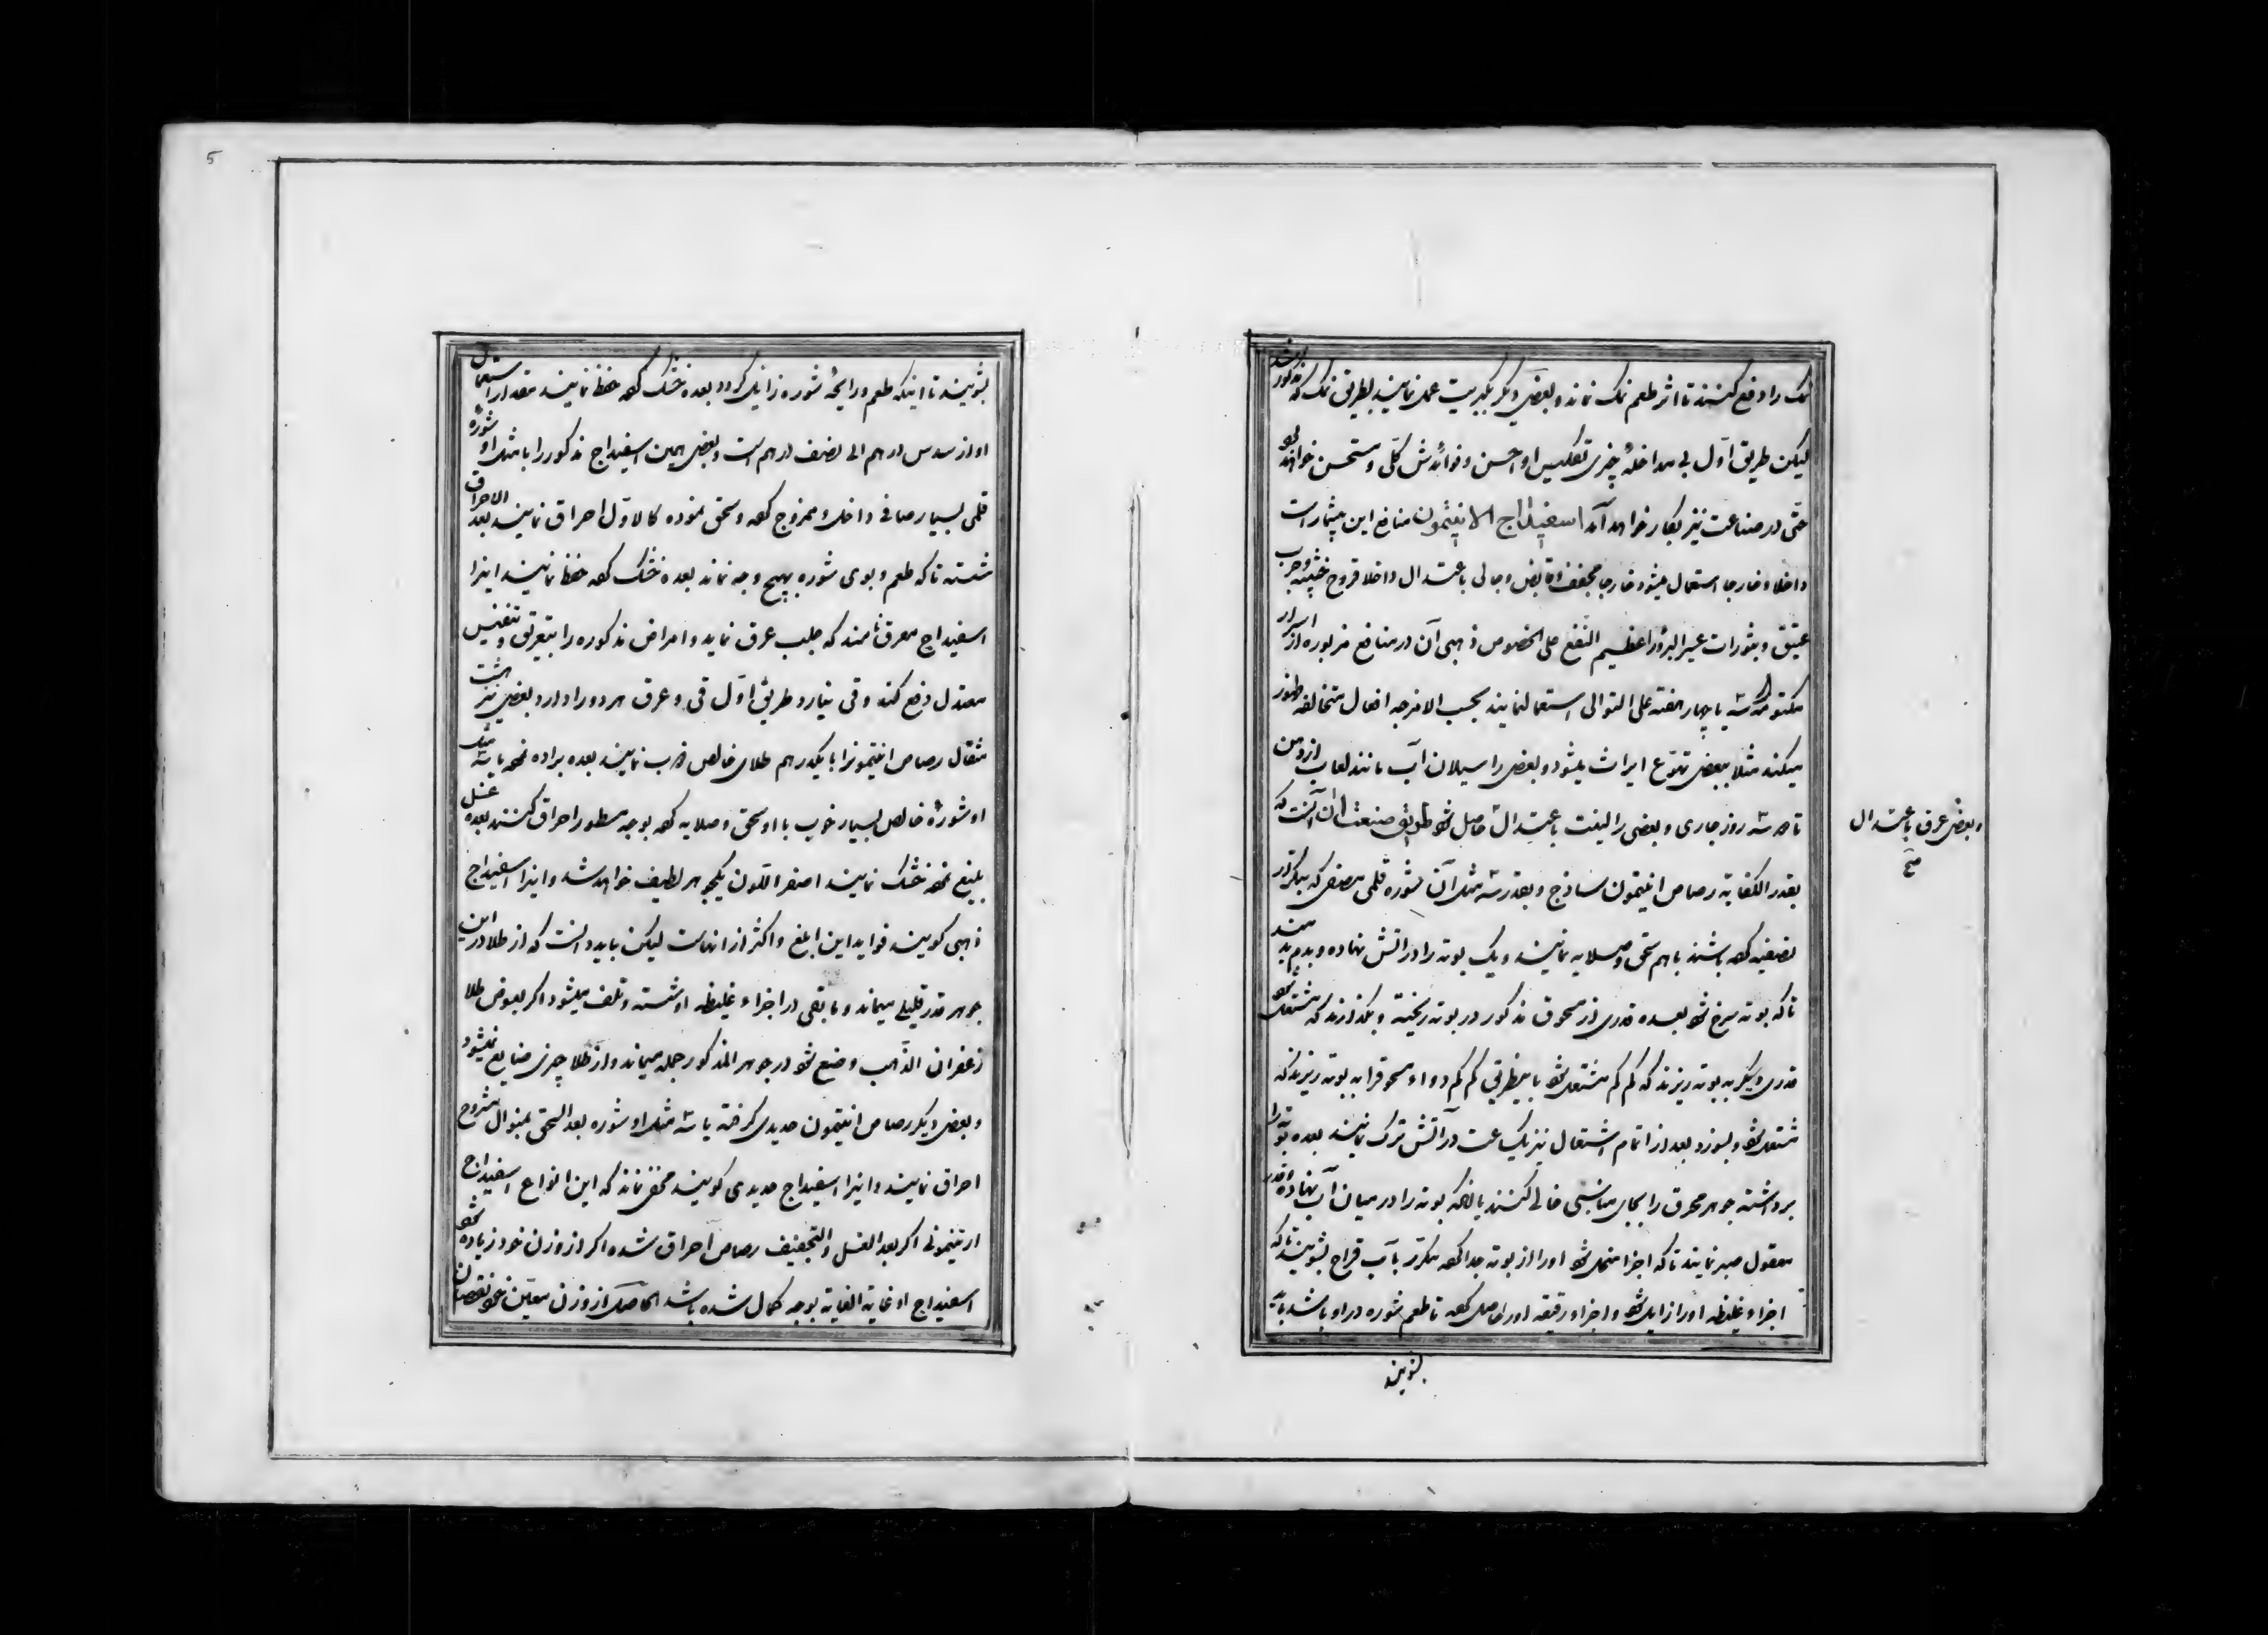 نمک را دفع کنند تا اثر طعم نمک نماند و بعضی دیگر بکبریت عمل نمایند بطریق نمک که مذکور شد
لیکن طریق اوّل بی مداخلهٔ چیزی تکلیس او احسن و فوائدش کلّی و مستحسن خواهد
حتّی در صناعت نیز بکار خواهد آمد اسفیداج الانتیمون منافع این بیشمار است
داخلا و خارجا استعمال میشود خارجا مجفف و قابض و جالی باعتدال داخلا قروح خبیثه و جرب
عتیق و بثورات عسر البرؤ را عظیم النّفع علی الخصوص ذهبی آن در منافع مزبوره از اسرار
مکتومه سه یا چهار هفته علی التوالی استعمالنمایند بحسب الامزجه افعال متخالفه ظهور
میکند مثلا ببعضی تهوّع ایراث میشود و بعضی را سیلان آب مانند لعاب از دهن
تا دو سه روز جاری و بعضی را لینت باعتدال حاصل شود طریق صنعت آن آنست که
بقدر الکفایه رصاص انتیمون ساذج و بقدر سه مثل آن شوره قلمی مصفی که مکرّر
تصفیه کرده باشند باهم سحق و صلایه نمایند و یک بوته را در اتش نهاده و بدمند
تا که بوته سرخ شود بعده قدری از مسحوق مذکور در بوته ریخته و بگذارند که مشتعل شود
قدری دیگر به بوته ریزند که کم کم مشتعل شود باینطریق کم کم دواء مسحوقرا به بوته ریزند که
مشتعل شود و بسوزد بعد از اتمام اشتعال نیز یکساعت در آتش ترک نمایند بعده بوته را
برداشته جوهر محرق را بجای مناسبی خالی کنند یا انکه بوته را در میان آب نهاده و قدر
معقول صبر نمایند تا که اجزا منحل شود اورا از بوته جدا کرده مکرّر بآب قراح بشویند تا که
اجزاء غلیظه اورا زایل شود و اجزاء رقیقه اورا حاصل کرده تا طعم شوره در او باشد باید
بشویند
و بعضی عرق باعتدال
صح
5
بشویند تا اینکه طعم و رایحهٔ شوره زایل گردد بعده خشک کرده حفظ نمایند مقدار استعمال
او از سدس درهم الی نصف درهم است و بعضی همین اسفیداج مذکور را با مثل او شورهٔ
قلمی بسیار صافی داخل و ممزوج کرده و سحق نموده کالاوّل احراق نمایند بعد الاحراق
شسته تا که طعم و بوی شوره بهیچ وجه نماند بعده خشک کرده حفظ نمایند اینرا
اسفیداج معرق نامند که جلب عرق نماید و امراض مذکوره را بتعریق و تنفیس
معتدل دفع کند و قی نیارد و طریق اوّل قی و عرق هر دو را دارد و بعضی نیز هشت
مثقال رصاص انتیمونرا با یکدرهم طلای خالص ذوب نمایند بعده براده نموده با سه مثل
او شورهٔ خالص بسیار خوب با او سحق و صلایه کرده بوجه مسطور احراق کنند بعده غسل
بلیغ نموده خشک نمایند اصفر اللّون یکجوهر لطیف خواهد شد و اینرا اسفیداج
ذهبی گویند فواید این ابلغ و اکثر از انهاست لیکن باید دانست که از طلا در این
جوهر قدر قلیلی میماند و مابقی در اجزاء غلیظه او شسته و تلف میشود اگر بعوض طلا
زعفران الذّهب وضع شود در جوهر المذکور جمله میماند و از طلا چیزی ضایع نمیشود
و بعضی دیگر رصاص انتیمون حدیدی گرفته با سه مثل او شوره بعد السحق بمنوال مشروح
احراق نمایند و اینرا اسفیداج حدیدی گویند مخفی نماند که این انواع اسفیداج
انتیمونی اگر بعد الغسل و التجفیف رصاص احراق شده اگر از وزن خود زیاده شود
اسفیداج او غایة الغایه بوجه کمال شده باشد الحاصل از وزن معیّن خود نقصان